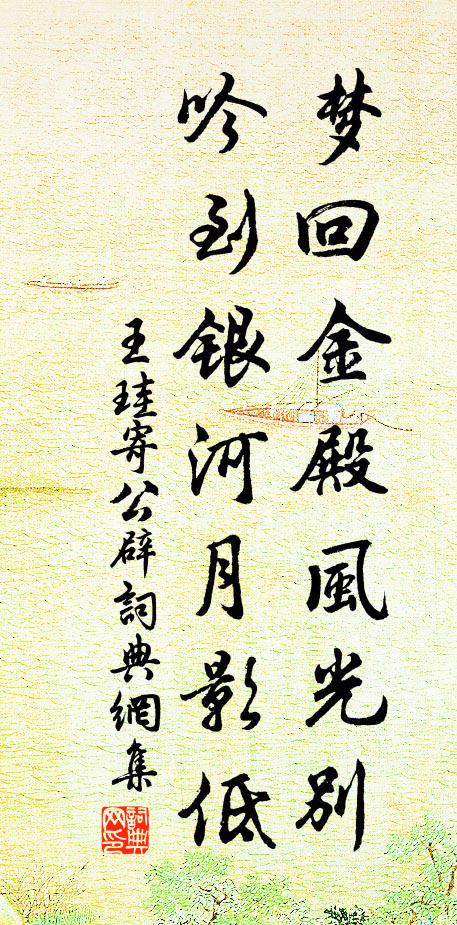 梦回金殿風光别
吟到銀河月影低
王珪寄公辟詞典網集
詞典网印